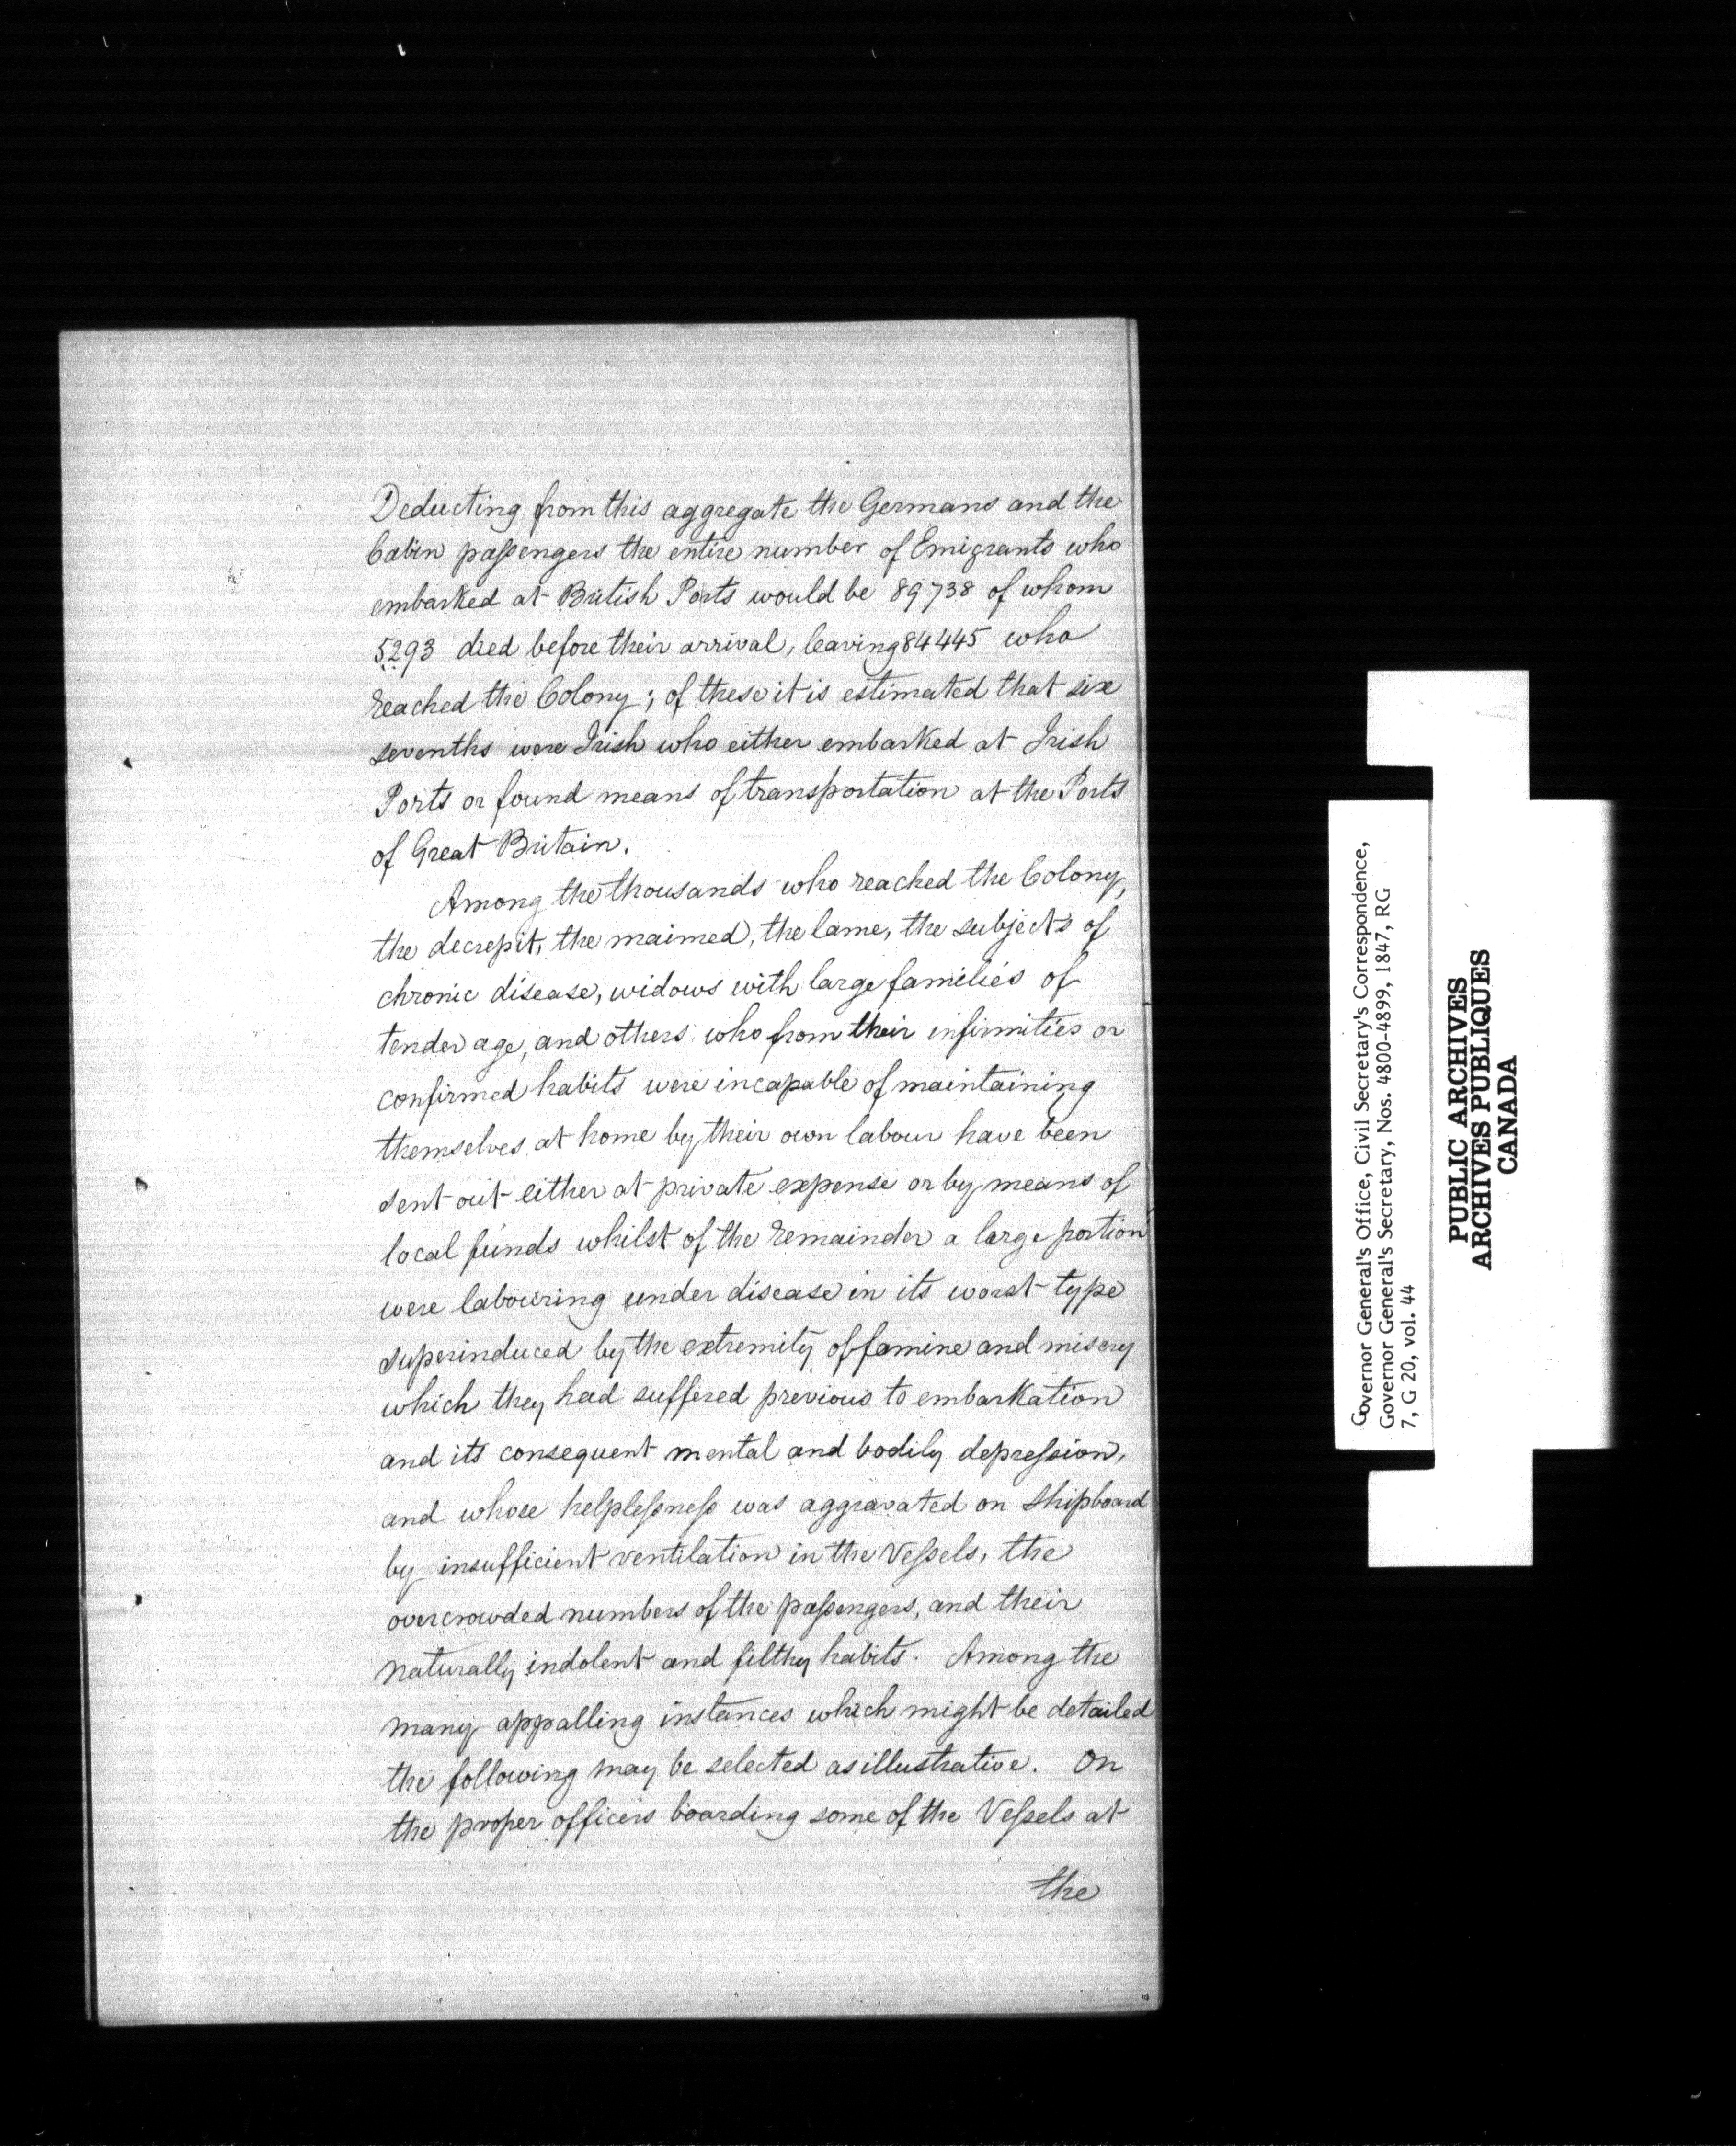 Deducting from this aggregate the Germans and the
Cabin passengers the entire number of Emigrants who
embarked at British Ports would be 89738 of whom
5293 died before their arrival, leaving 84445 who
reached the Colony; of these it is estimated that six
sevenths were Irish who either embarked at Irish
Ports or found means of transportation at the Ports
of Great Britain.
Among the thousands who reached the Colony,
the decrepit, the maimed, the lame, the subjects of
chronic disease, widows with large families of
tender age, and others who from their infirmities or
confirmed habits were incapable of maintaining
themselves at home by their own labour have been
sent out either at private expense or by means of
local funds whilst of the remainder a large portion
were labouring under disease in its worst type
superinduced by the extremity of famine and misery
which they had suffered previous to embarkation
and its consequent mental and bodily depression,
and whose helplessness was aggravated on shipboard
by insufficient ventilation in the Vessels, the
overcrowded numbers of the passengers, and their
naturally indolent and filthy habits. Among the
many appalling instances which might be detailed
the following may be selected as illustrative. On
the proper officers boarding some of the Vessels at
the
Governor General's Office, Civil Secretary's Correspondence,
Governor General's Secretary, Nos. 4800-4899, 1847, RG
7, G 20, vol. 44
PUBLIC ARCHIVES
ARCHIVES PUBLIQUES
CANADA